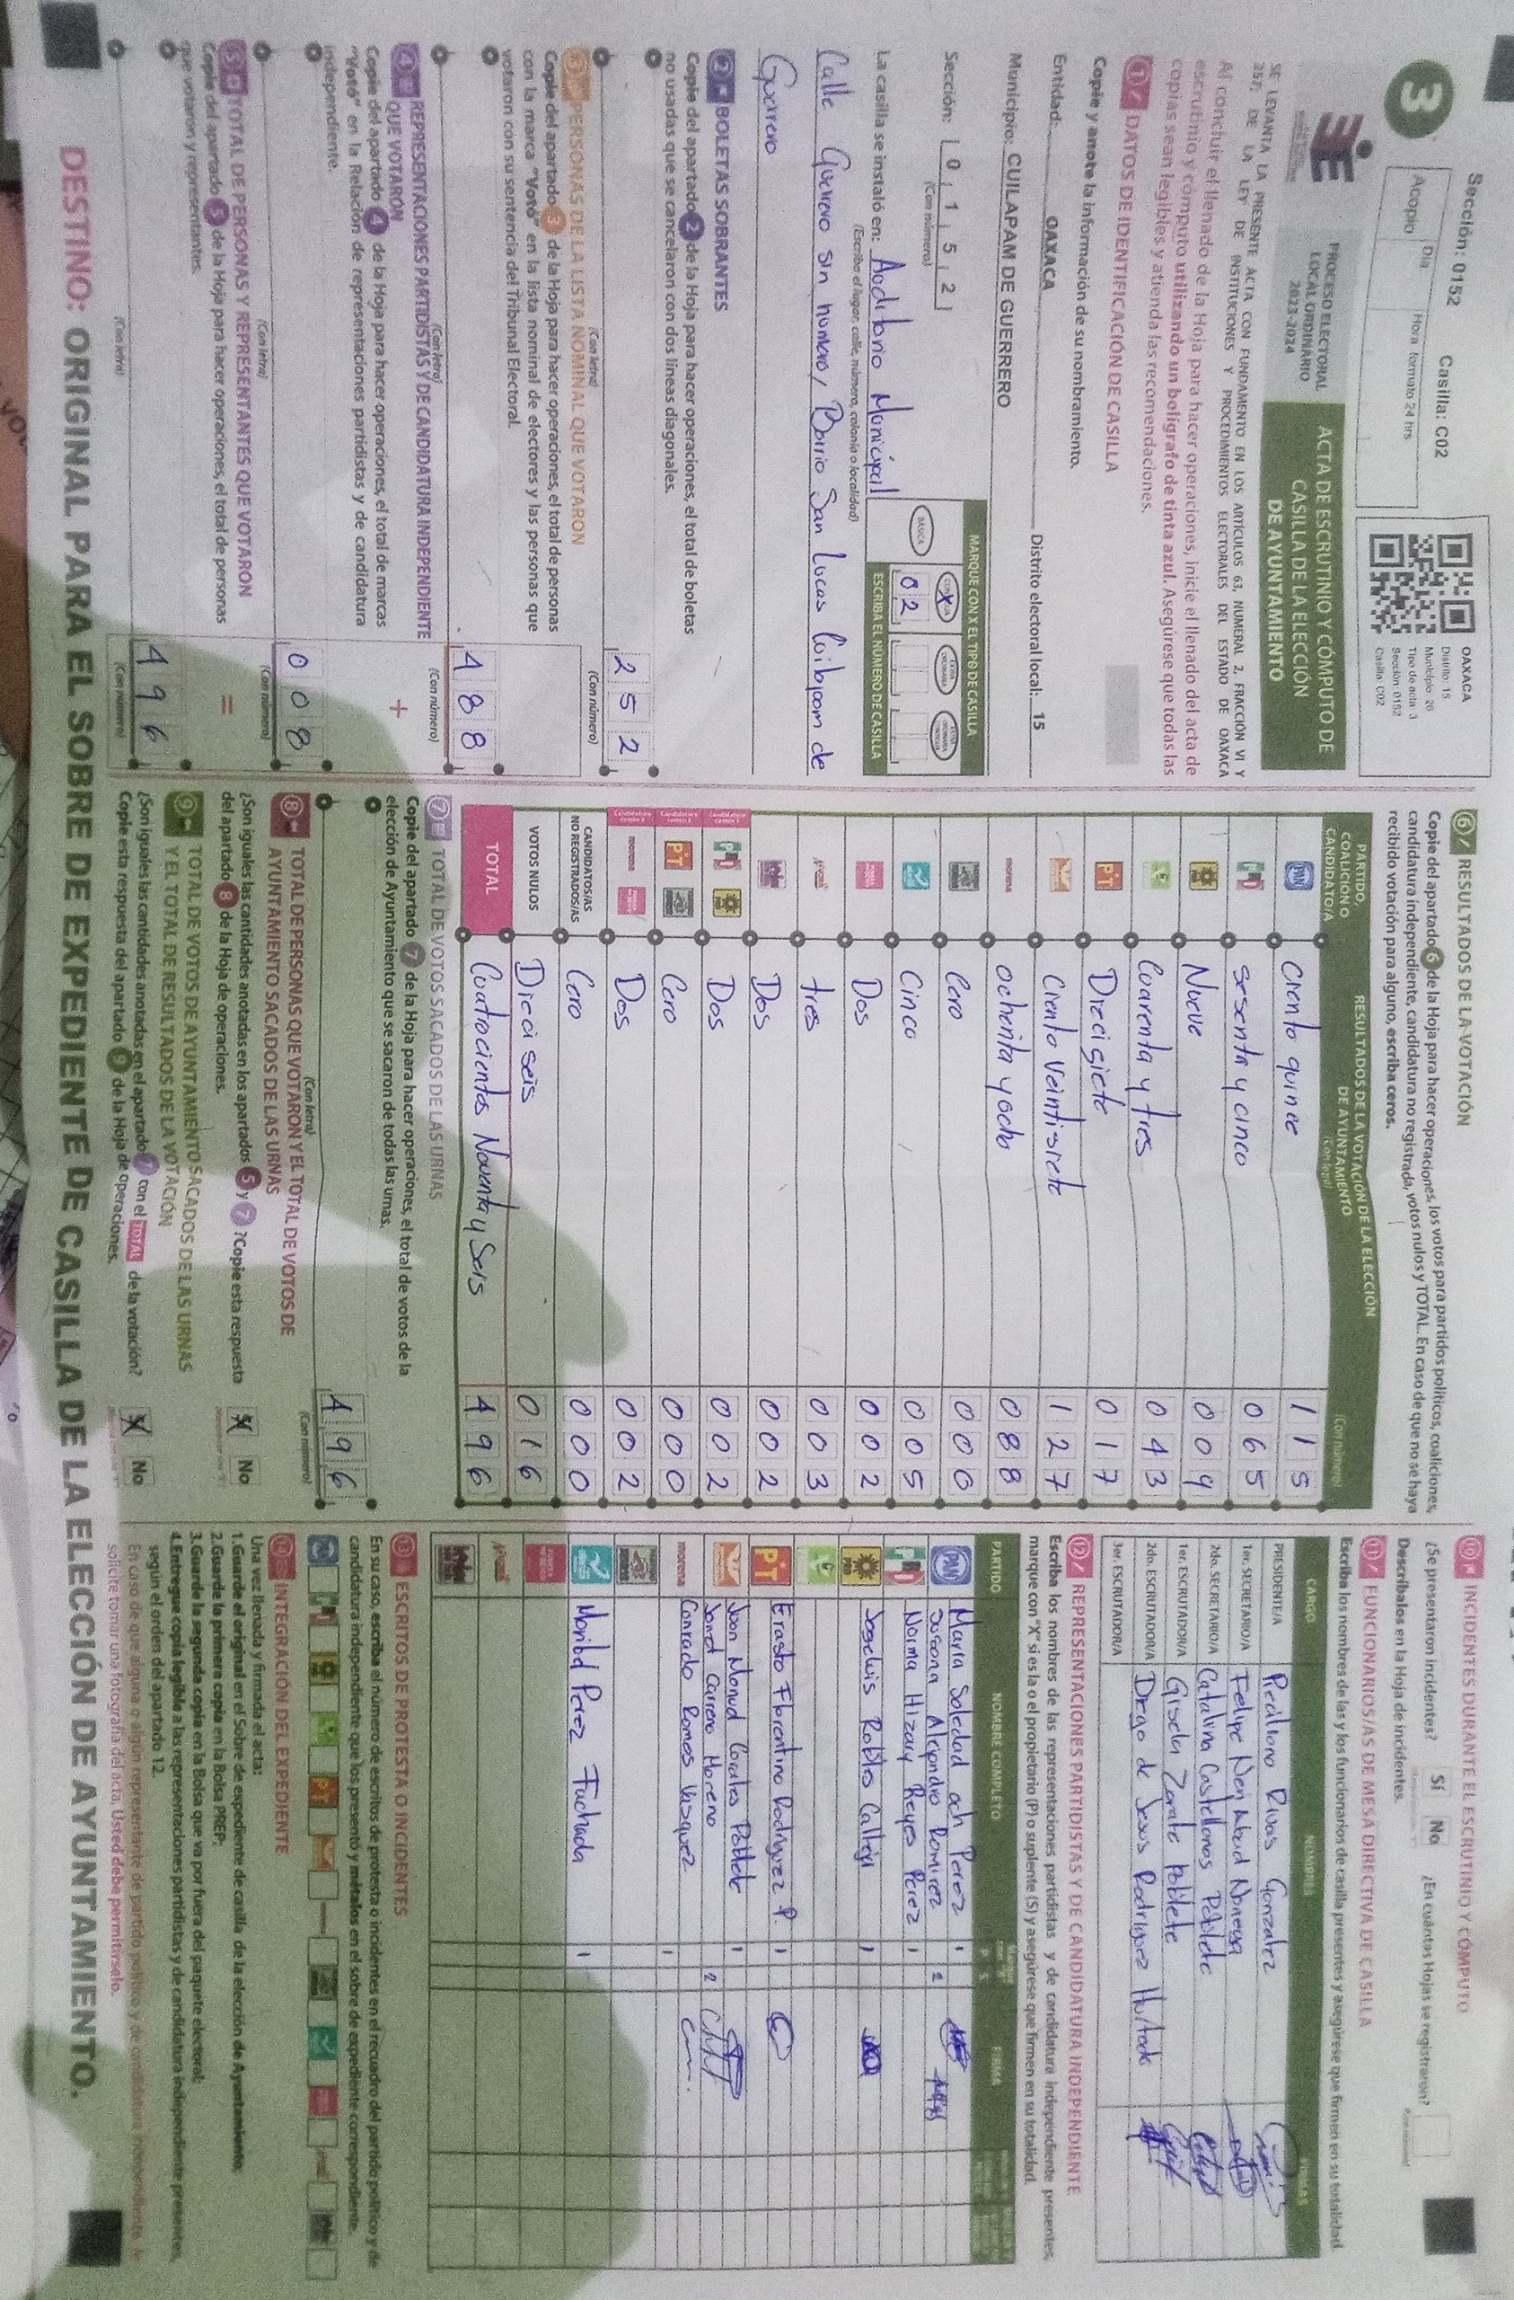 Sección: 0152 Casilla: C02
3
Acopio
Día
Hora formato 24 hrs
OAXACA
Distrito: 15
Municipio: 20
Tipo de acta: 3
Sección: 0152
Casilla: C02
PROCESO ELECTORAL
LOCAL ORDINARIO
2023-2024
ACTA DE ESCRUTINIO Y CÓMPUTO DE
CASILLA DE LA ELECCIÓN
DE AYUNTAMIENTO
SE LEVANTA LA PRESENTE ACTA CON FUNDAMENTO EN LOS ARTÍCULOS 63, NUMERAL 2, FRACCIÓN VI Y
257; DE LA LEY DE INSTITUCIONES Y PROCEDIMIENTOS ELECTORALES DEL ESTADO DE OAXACA
Al concluir el llenado de la Hoja para hacer operaciones, inicie el llenado del acta de
escrutinio y cómputo utilizando un bolígrafo de tinta azul. Asegúrese que todas las
copias sean legibles y atienda las recomendaciones.
1 DATOS DE IDENTIFICACIÓN DE CASILLA
Copie y anote la información de su nombramiento.
Entidad: OAXACA Distrito electoral local: 15
Municipio: CUILAPAM DE GUERRERO
Sección: 0 1 5 2
(Con número)
MARQUE CON X EL TIPO DE CASILLA
BÁSICA
0 2
ESCRIBA EL NÚMERO DE CASILLA
La casilla se instaló en: Auditorio Municipal
(Escriba el lugar: calle, número, colonia o localidad)
Calle Guerrero sin numero, Barrio San Lucas Cuilapam de
Guerrero
2 BOLETAS SOBRANTES
Copie del apartado 2 de la Hoja para hacer operaciones, el total de boletas
no usadas que se cancelaron con dos líneas diagonales.
2 5 2
(Con letra) (Con número)
3 PERSONAS DE LA LISTA NOMINAL QUE VOTARON
Copie del apartado 3 de la Hoja para hacer operaciones, el total de personas
con la marca "Votó" en la lista nominal de electores y las personas que
votaron con su sentencia del Tribunal Electoral.
4 8 8
(Con letra) (Con número)
4 REPRESENTACIONES PARTIDISTAS Y DE CANDIDATURA INDEPENDIENTE
QUE VOTARON
+
Copie del apartado 4 de la Hoja para hacer operaciones, el total de marcas
"Votó" en la Relación de representaciones partidistas y de candidatura
independiente.
0 0 8
(Con letra) (Con número)
5 TOTAL DE PERSONAS Y REPRESENTANTES QUE VOTARON
=
Copie del apartado 5 de la Hoja para hacer operaciones, el total de personas
que votaron y representantes.
4 9 6
(Con letra) (Con número)
6 RESULTADOS DE LA VOTACIÓN
Copie del apartado 6 de la Hoja para hacer operaciones, los votos para partidos políticos, coaliciones,
candidatura independiente, candidatura no registrada, votos nulos y TOTAL. En caso de que no se haya
recibido votación para alguno, escriba ceros.
PARTIDO,
COALICIÓN O
CANDIDATO/A
RESULTADOS DE LA VOTACIÓN DE LA ELECCIÓN
DE AYUNTAMIENTO
(Con letra) (Con número)
PAN Ciento quince 1 1 5
PRI sesenta y cinco 0 6 5
Nueve 0 0 9
Cuarenta y tres 0 4 3
PT Diecisiete 0 1 7
Ciento Veintisiete 1 2 7
morena ochenta y ocho 0 8 8
Cero 0 0 0
Cinco 0 0 5
Dos 0 0 2
tres 0 0 3
Dos 0 0 2
Dos 0 0 2
PT Cero 0 0 0
morena Dos 0 0 2
CANDIDATOS/AS
NO REGISTRADOS/AS Cero 0 0 0
VOTOS NULOS Dieciseis 0 1 6
TOTAL Cuatrocientos Noventa y Seis 4 9 6
7 TOTAL DE VOTOS SACADOS DE LAS URNAS
Copie del apartado 7 de la Hoja para hacer operaciones, el total de votos de la
elección de Ayuntamiento que se sacaron de todas las urnas.
4 9 6
(Con letra) (Con número)
8 TOTAL DE PERSONAS QUE VOTARON Y EL TOTAL DE VOTOS DE
AYUNTAMIENTO SACADOS DE LAS URNAS
¿Son iguales las cantidades anotadas en los apartados 5 y 7 ? Copie esta respuesta
del apartado 8 de la Hoja de operaciones.
Sí No
9 TOTAL DE VOTOS DE AYUNTAMIENTO SACADOS DE LAS URNAS
Y EL TOTAL DE RESULTADOS DE LA VOTACIÓN
¿Son iguales las cantidades anotadas en el apartado 7 con el TOTAL de la votación?
Copie esta respuesta del apartado 9 de la Hoja de operaciones.
Sí No
10 INCIDENTES DURANTE EL ESCRUTINIO Y CÓMPUTO
¿Se presentaron incidentes? Sí No ¿En cuántas Hojas se registraron?
Descríbalos en la Hoja de incidentes.
11 FUNCIONARIOS/AS DE MESA DIRECTIVA DE CASILLA
Escriba los nombres de las y los funcionarios de casilla presentes y asegúrese que firmen en su totalidad.
CARGO NOMBRES FIRMAS
PRESIDENTE/A
1er. SECRETARIO/A
2do. SECRETARIO/A Catalina Castellanos Poblete
1er. ESCRUTADOR/A Gisela Zarate Poblete
2do. ESCRUTADOR/A Diego de Jesus Rodriguez Hurtado
3er. ESCRUTADOR/A
12 REPRESENTACIONES PARTIDISTAS Y DE CANDIDATURA INDEPENDIENTE
Escriba los nombres de las representaciones partidistas y de candidatura independiente presentes,
marque con "X" si es la o el propietario (P) o suplente (S) y asegúrese que firmen en su totalidad.
PARTIDO NOMBRE COMPLETO FIRMA
PAN Maria Soledad Perez
Susana Alejandra Ramirez
Norma Perez
PRD Joseluis Robles
PT Erasto Florentino Rodriguez P.
Juan Manuel Corales Poblete
Janet Carreno Moreno
morena Conrado Ramos Vasquez
Maribel Perez Fachada
13 ESCRITOS DE PROTESTA O INCIDENTES
En su caso, escriba el número de escritos de protesta o incidentes en el recuadro del partido político y de
candidatura independiente que los presentó y métalos en el sobre de expediente correspondiente.
14 INTEGRACIÓN DEL EXPEDIENTE
Una vez llenada y firmada el acta:
1.Guarde el original en el Sobre de expediente de casilla de la elección de Ayuntamiento;
2.Guarde la primera copia en la Bolsa PREP;
3.Guarde la segunda copia en la Bolsa que va por fuera del paquete electoral;
4.Entregue copia legible a las representaciones partidistas y de candidatura independiente presentes,
según el orden del apartado 12.
En caso de que alguna o algún representante de partido político y de candidatura independiente, le
solicite tomar una fotografía del acta, Usted debe permitírselo.
DESTINO: ORIGINAL PARA EL SOBRE DE EXPEDIENTE DE CASILLA DE LA ELECCIÓN DE AYUNTAMIENTO.